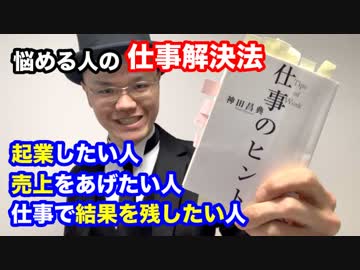 悩める人の仕事解決法
起業したい人
売上をあげたい人
仕事で結果を残したい人
仕事のヒント
Tips of Work
神田昌典